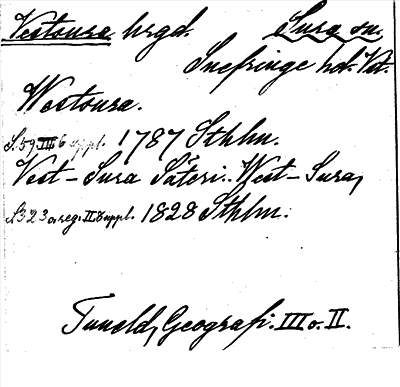 Vestsura hrgd. Sura sn.
Snefringe hd. Vst.
Westsura.
S. 59 III 6 uppl. 1787 Sthlm.
Vest-Sura Säteri. West-Sura,
S. 323 o. reg. II 8 uppl. 1828 Sthlm.
Tuneld, Geografi. III o. II.